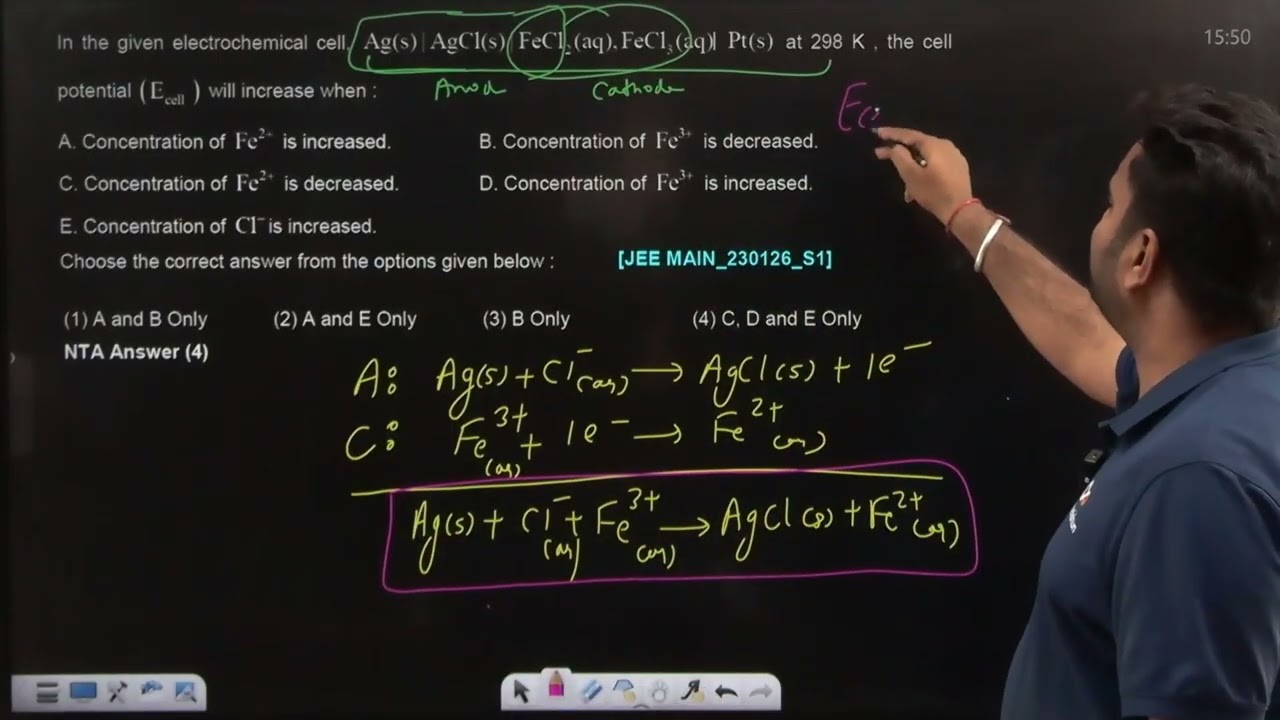 15:50
In the given electrochemical cell, Ag(s)|AgCl(s)|FeCl₂(aq),FeCl₃(aq)| Pt(s) at 298 K , the cell
potential (E_cell) will increase when :
Anod Cathode
Ec
A. Concentration of Fe²⁺ is increased. B. Concentration of Fe³⁺ is decreased.
C. Concentration of Fe²⁺ is decreased. D. Concentration of Fe³⁺ is increased.
E. Concentration of Cl⁻ is increased.
Choose the correct answer from the options given below : [JEE MAIN_230126_S1]
(1) A and B Only (2) A and E Only (3) B Only (4) C, D and E Only
NTA Answer (4)
A: Ag(s) + Cl⁻(aq) → AgCl(s) + 1e⁻
C: Fe³⁺(aq) + 1e⁻ → Fe²⁺(aq)
Ag(s) + Cl⁻(aq) + Fe³⁺(aq) → AgCl(s) + Fe²⁺(aq)